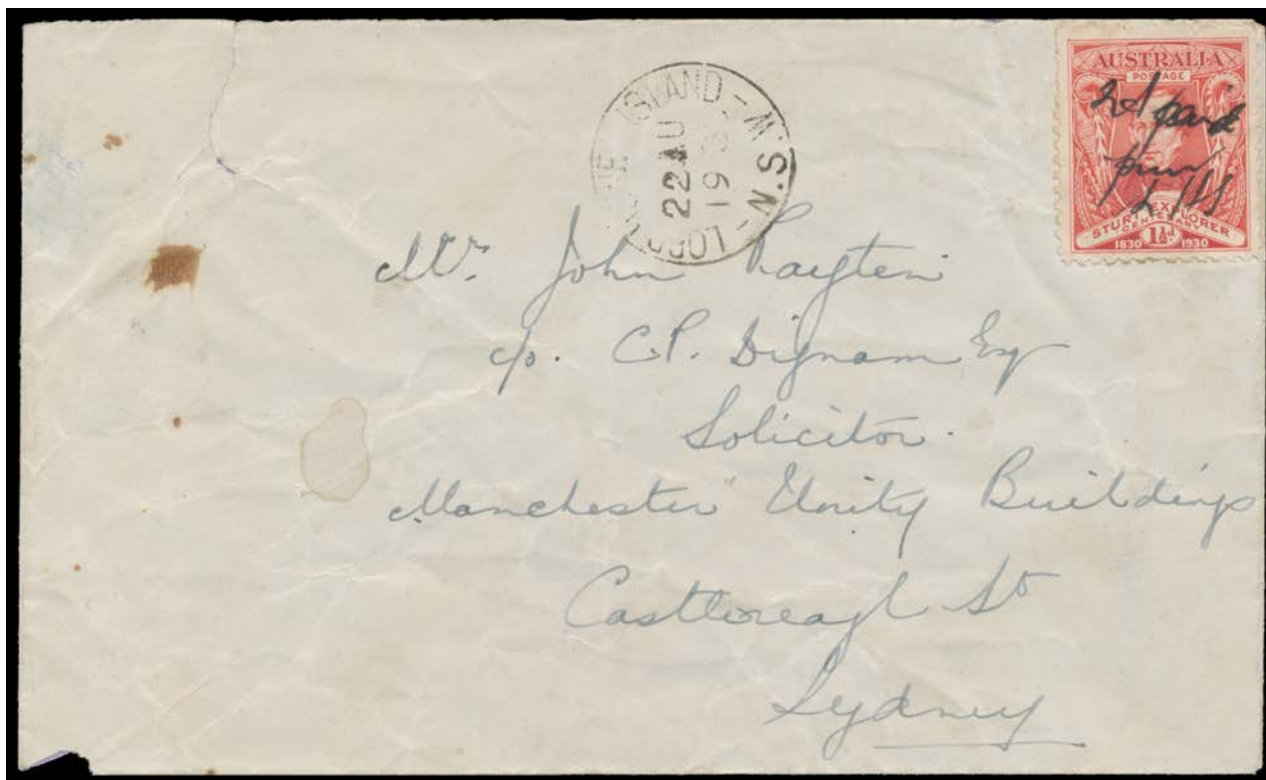 AUSTRALIA
POSTAGE
2d paid
STURT EXPLORER
CENTENARY
1830 1½d 1930
LORD HOWE ISLAND - N.S.W
22 AU
19
Mr. John
c/o. C.P. Dignam Esq
Solicitor.
Manchester Unity Buildings
Castlereagh St
Sydney